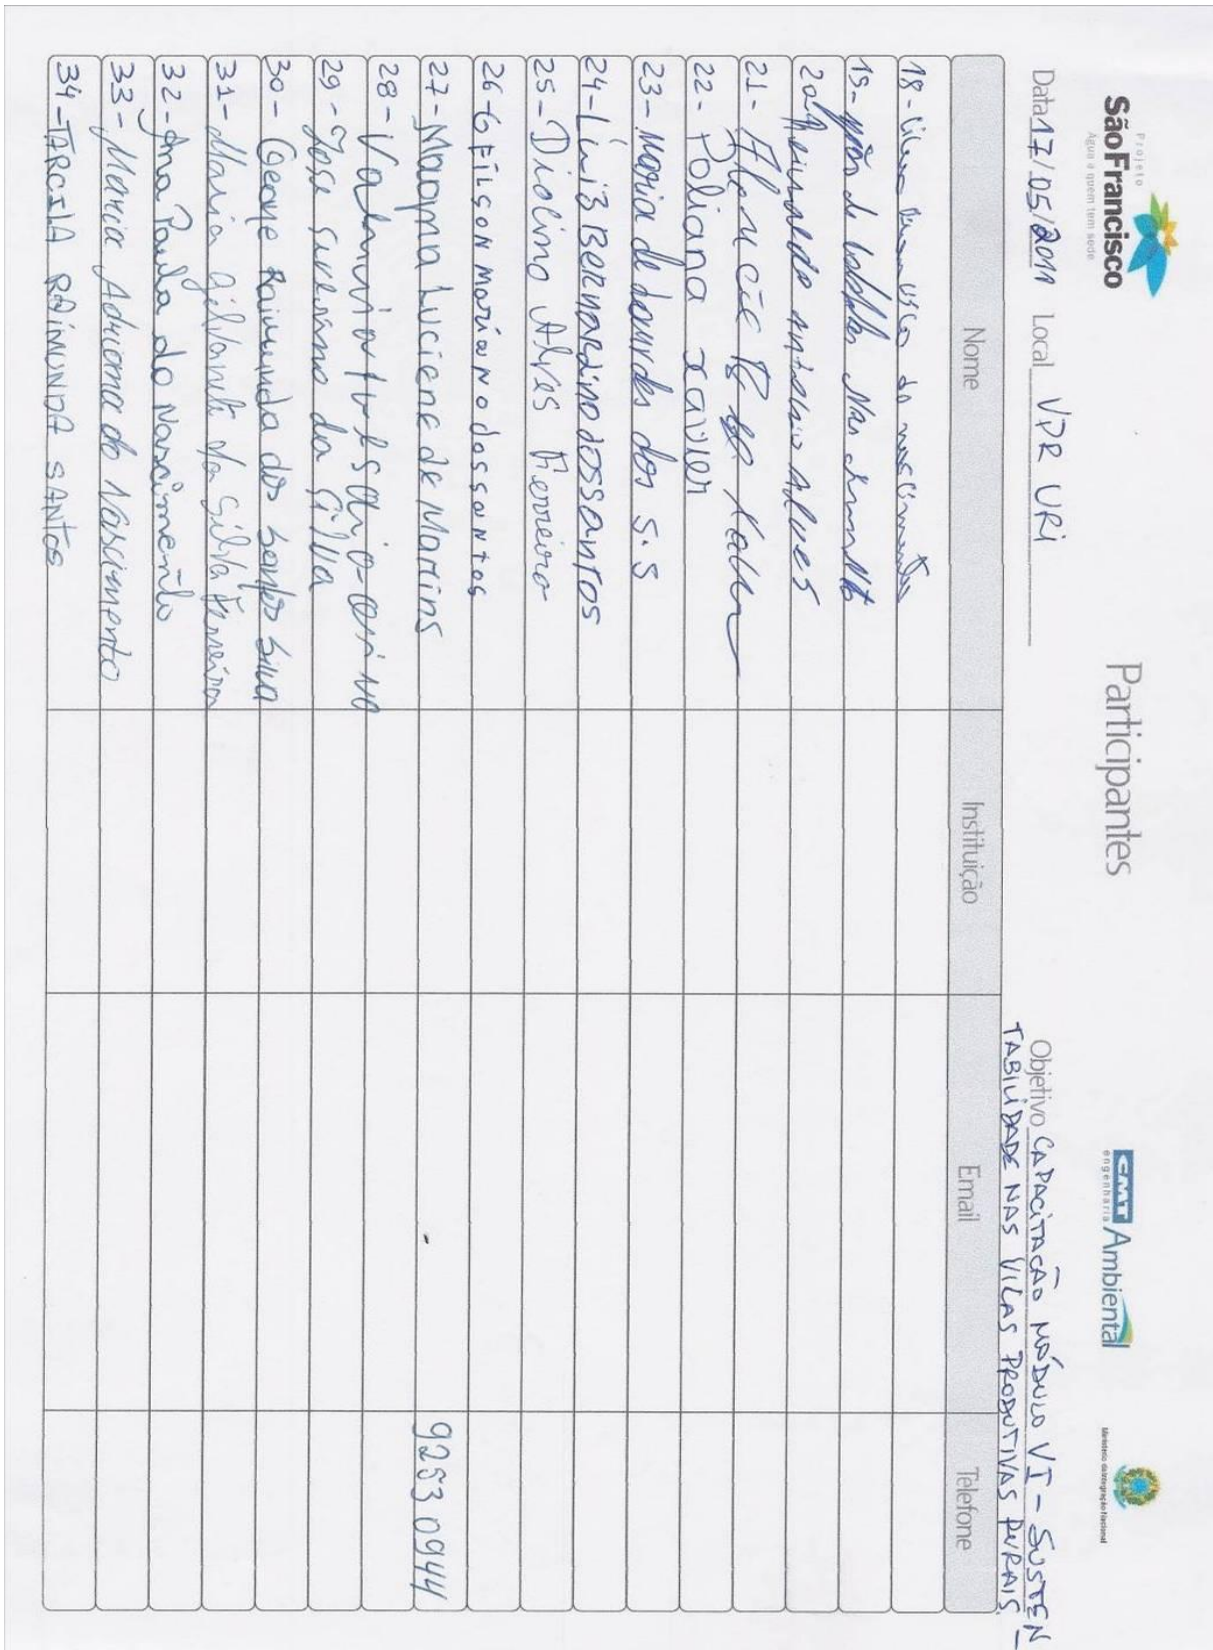 Projeto
São Francisco
Água a quem tem sede
Participantes
CMT Ambiental
engenharia
Ministério da Integração Nacional
Data 17/05/2011 Local VPR URI
Objetivo CAPACITAÇÃO MÓDULO VI - SUSTEN
TABILIDADE NAS VILAS PRODUTIVAS RURAIS -
Nome Instituição Email Telefone
18- do nascimento
19- de
20- antonio Alves
21-
22- Poliana xavier
23- Maria de Lourdes dos S.S
24- Luiz Bernardino dos santos
25- Diolino Alves Ferreira
26- GEÍLSON mariano dos santos
27- Magna Luciene de Marins 92530944
28-
29- José Severino da Silva
30- Geane Raimunda dos santos Silva
31- Maria Gilvanete da Silva Ferreira
32- Ana Paula do Nascimento
33- Maria Adriana do Nascimento
34- TARCILA RAIMUNDA SANTOS